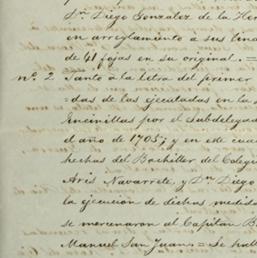 Dn. Diego Gonzalez de la Her
en arreglamento a sus lina
de 41 fojas en su original. =
nº. 2. Tanto a la letra del primer
=das de las ejecutadas en la
Encinillas por el Subdelegad
el año de 1705; y en este cua
hechas del Bachiller del Coleg
Aris Navarrete, y Dn. Diego
la ejecucion de dichas medida
se mercenaron al Capitan B
Manuel San Juan = Se hall